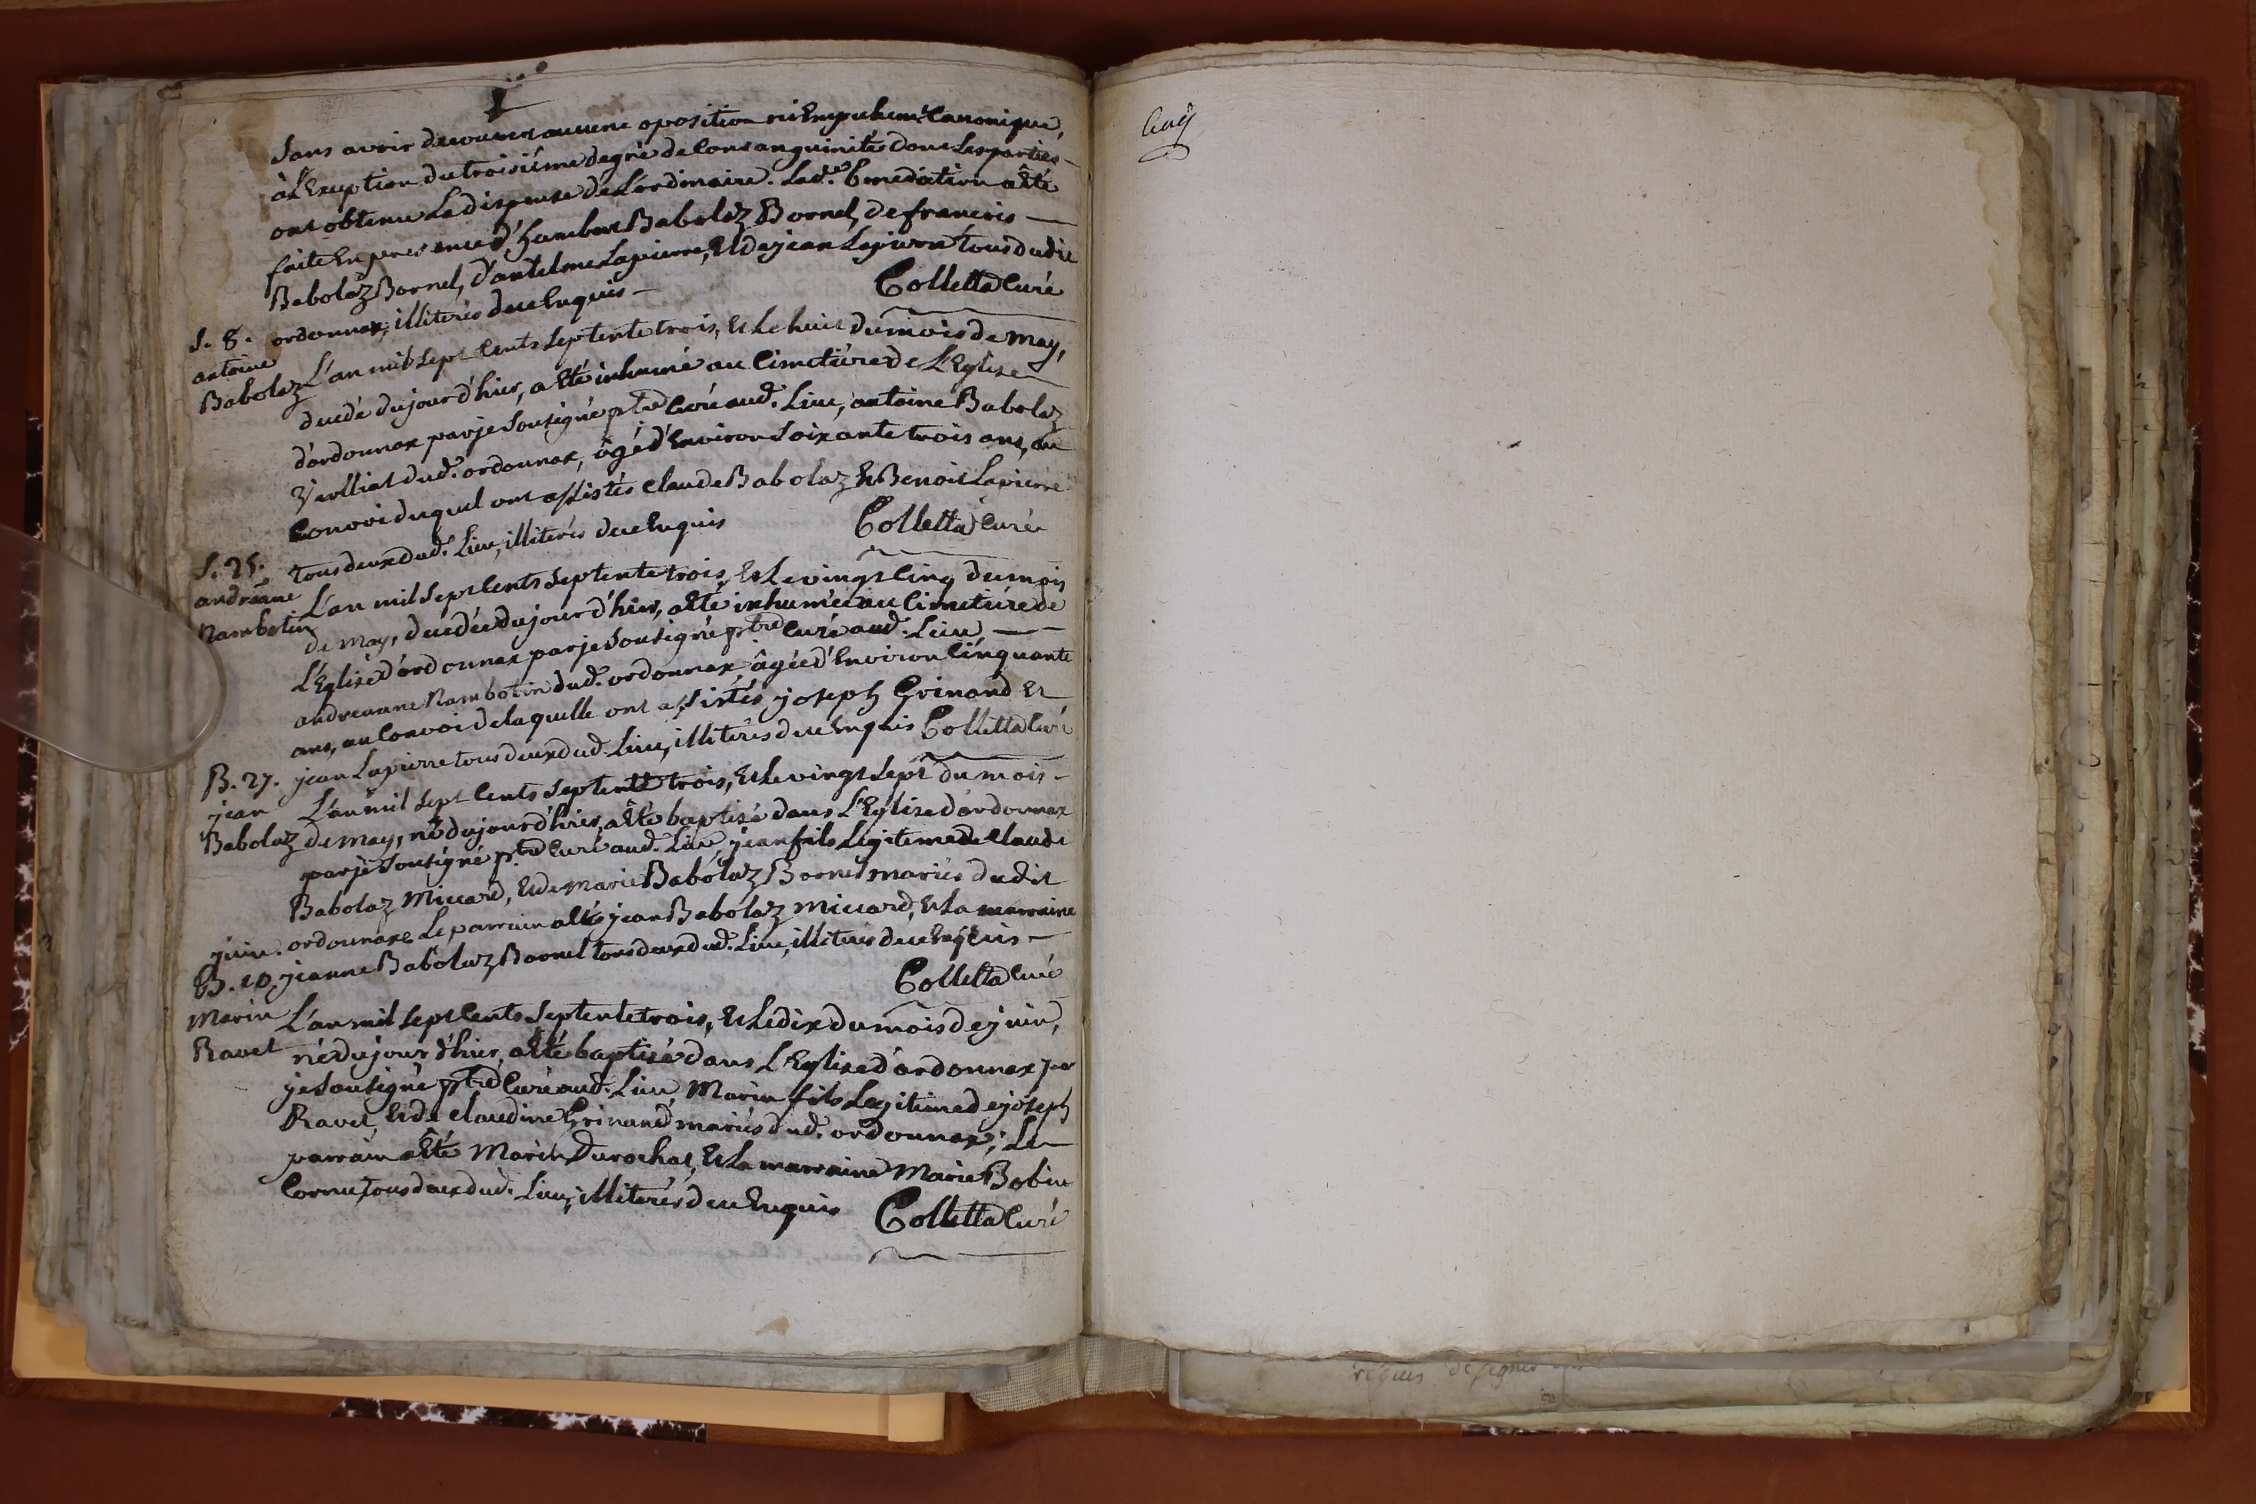 Sans avoir decouvert aucune oposition ni Empechemt. Canonique,
à L'Exception du troisiéme degré de Consanguinités dont Les parties
ont obtenu La dispense de L'ordinaire. Lad.e benediction a Eté
faite En presence d'humbert Babolaz Bornel, de francois
Babolaz Bornel, d'antelme Lapierre, Et de jean Lapierre tous dudit
ordonnax, illiterés de ce Enquis Colletta Curé
S. 8.
antoine
Babolaz
L'an mil Sept Cents Septente trois, Et Le huit du mois de May,
decedé du jour d'hier, a Eté inhumé au Cimetiere de L'Eglise
d'ordonnax par je Sousigné ptre Curé aud. Lieu, antoine Babolaz
dud. ordonnax, âgé d'Environ Soixante trois ans, au
Convoi duquel ont assistés Claude Babolaz Et Benoit Lapierre
tous deux dud. Lieu, illiterés de ce Enquis Colletta Curé
S. 25.
andréane
Nambotin
L'an mil Sept Cents Septente trois, Et Le vingt Cinq du mois
de May, decedée du jour d'hier, a Eté inhumée au Cimetiere de
L'Eglise d'ordonnax par je Sousigné ptre Curé aud. Lieu,
andreanne Nambotin dud. ordonnax, âgée d'Environ Cinquante
ans, au Convoi de laquelle ont assistés, joseph Grinand Et
jean Lapierre tous deux dud. Lieu, illiterés de ce Enquis Colletta Curé
B. 27.
jean
Babolaz
L'an mil Sept Cents Septente trois, Et Le vingt Sept du mois
de May, né du jour d'hier, a Eté baptisé dans L'Eglise d'ordonnax
par je Sousigné ptre Curé aud. Lieu, jean fils Legitime de Claude
Babolaz Miccard, Et de Marie Babolaz Bornel mariés dudit
ordonnax, Le parrain a Eté jean Babolaz Miccard, Et La marraine
jeanne Babolaz Bornel tous deux dud. Lieu, illiterés de ce Enquis
Colletta Curé
juin.
B. 10.
Marin
Ravet
L'an mil Sept Cents Septente trois, Et Le dix du mois de juin,
né du jour d'hier, a Eté baptisé dans L'Eglise d'ordonnax par
je Sousigné ptre Curé aud. Lieu, Marin fils Legitime de joseph
Ravet, Et de Claudine Grinand mariés dud. ordonnax; Le
parrain a Eté Marin Durochat, Et La marraine Marie Bobin
Cornu, tous deux dud. Lieu, illiterés de ce Enquis Colletta Curé